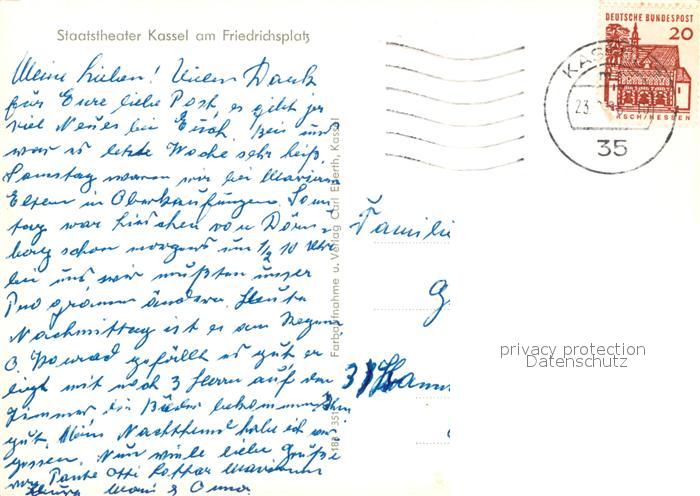 Staatstheater Kassel am Friedrichsplatz
DEUTSCHE BUNDESPOST
20
KAS
23
35
RSCH/HESSEN
Meine Lieben! Vielen Dank
für Eure liebe Post, es gibt ja
viel Neues bei Euch. Bei uns
war es letzte Woche sehr heiß.
Samstag waren wir bei Mariannes
Eltern in Oberkaufungen. Sonn
tag war von Dörn-
berg schon morgens um 1/2 10 Uhr
bei uns wir mußten unser
Programm ändern. Heute
Nachmittag ist es am Regnen
O. Konrad gefällt es gut, er
liegt mit noch 3 Herrn auf dem
Zimmer die Bäder bekommen ihm
gut. Mein Nachthemd habe ich
Nun viele liebe Grüße
von Tante Otti Lothar Mariannes
Mani & Oma.
Farbaufnahme u. Verlag Carl Eberth, Kassel
Familie
G
3 Hann
privacy protection
Datenschutz